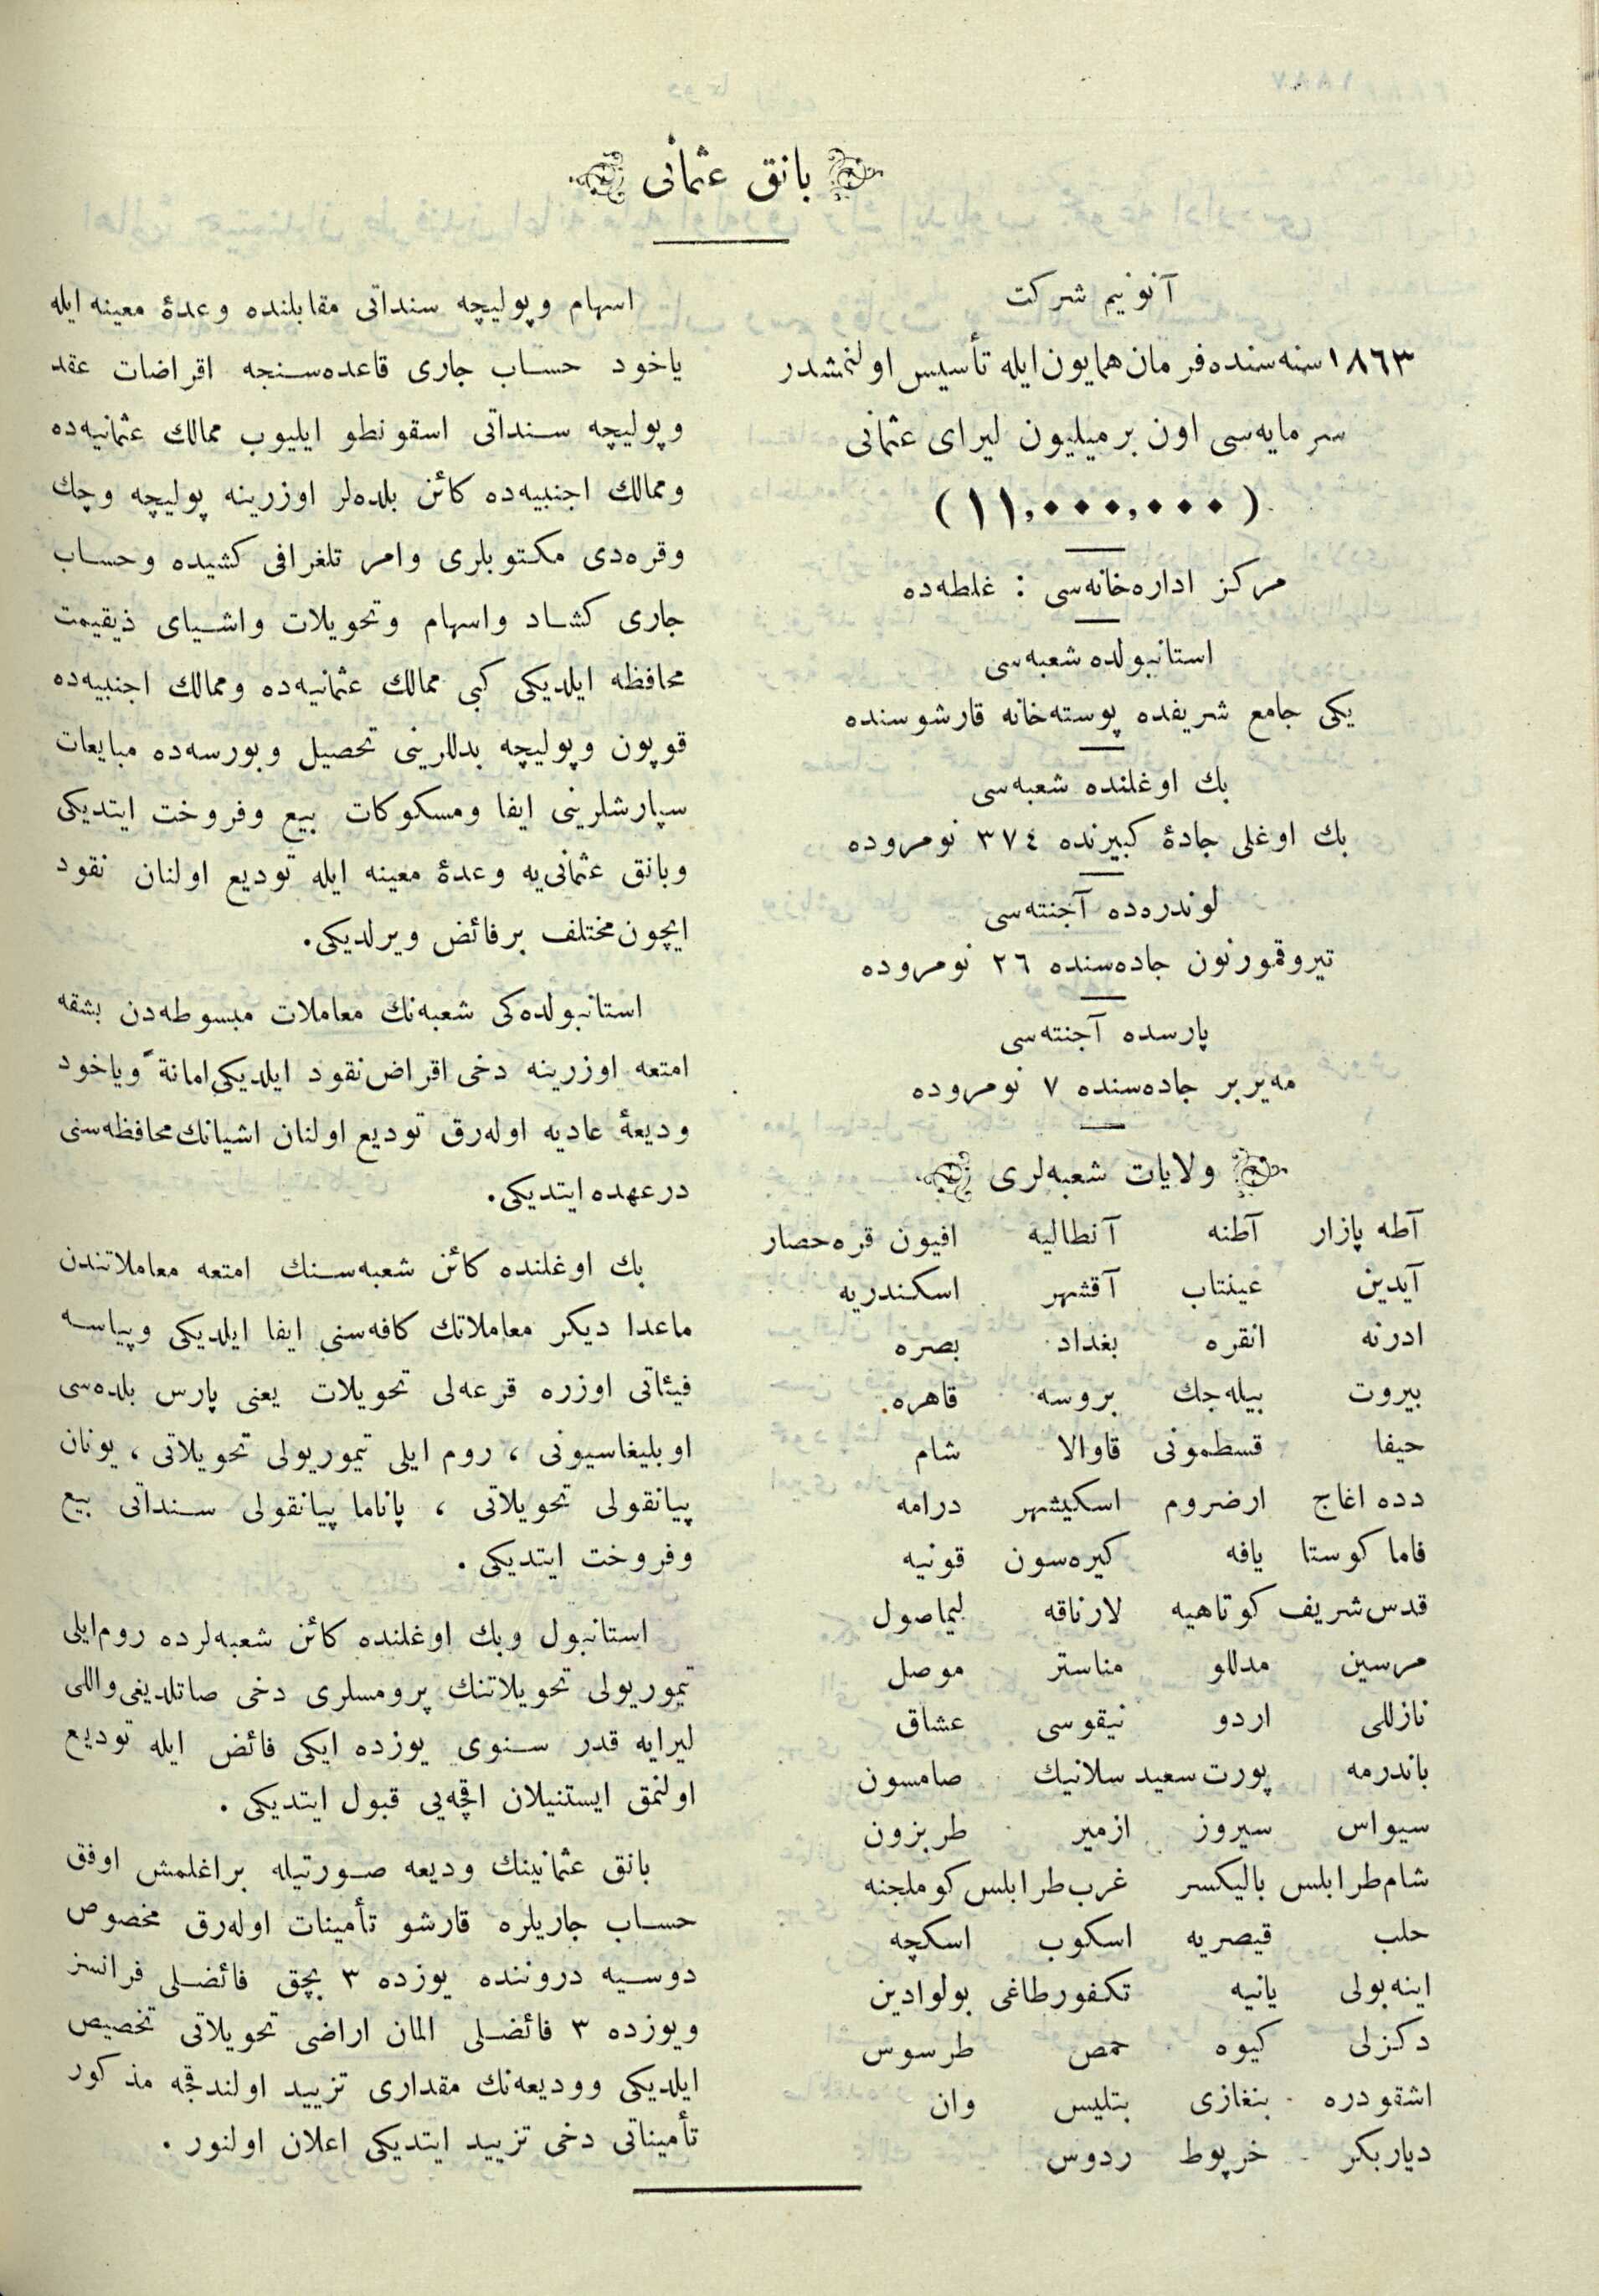 بانق عثمانی
آنونیم شرکت
١٨٦٣ سنه‌سنده فرمان همایون ایله تأسیس اولنمشدر
سرمایه‌سی اون بر میلیون لیرای عثمانی
(١١,٠٠٠,٠٠٠)
مرکز اداره‌خانه‌سی : غلطه‌ده
استانبولده شعبه‌سی
یکی جامع شریفده پوسته‌خانه قارشوسنده
بك اوغلنده شعبه‌سی
بك اوغلی جادهٔ کبیرنده ٣٧٤ نومروده
لوندره‌ده آجنته‌سی
تیروقمورنون جاده‌سنده ٢٦ نومروده
پارسده آجنته‌سی
مه‌یربر جاده‌سنده ٧ نومروده
ولایات شعبه‌لری
آطه پازار آطنه آنطالیه افیون قره‌حصار
آیدین عینتاب آقشهر اسکندریه
ادرنه انقره بغداد بصره
بیروت بیله‌جك بروسه قاهره
حیفا قسطمونی قاوالا شام
دده اغاج ارضروم اسکیشهر درامه
فاماکوستا یافه کیره‌سون قونیه
قدس‌شریف کوتاهیه لارناقه لیماصول
مرسین مدللو مناستر موصل
نازللی اردو نیقوسی عشاق
باندرمه پورت سعید سلانیك صامسون
سیواس سیروز ازمیر طربزون
شام‌طرابلس بالیکسر غرب‌طرابلس کوملجنه
حلب قیصریه اسکوب اسکچه
اینه‌بولی یانیه تکفورطاغی بولوادین
دکزلی کیوه حمص طرسوس
اشقودره بنغازی بتلیس وان
دیاربکر خرپوط ردوس
اسهام وپولیچه سنداتی مقابلنده وعدهٔ معینه ایله
یاخود حساب جاری قاعده‌سنجه اقراضات عقد
وپولیچه سنداتی اسقونطو ایلیوب ممالك عثمانیه‌ده
وممالك اجنبیه‌ده کائن بلده‌لر اوزرینه پولیچه وچك
وقره‌دی مکتوبلری وامر تلغرافی کشیده وحساب
جاری کشاد واسهام وتحویلات واشیای ذیقیمت
محافظه ایلدیکی کبی ممالك عثمانیه‌ده وممالك اجنبیه‌ده
قوپون وپولیچه بدللرینی تحصیل وبورسه‌ده مبایعات
سپارشلرینی ایفا ومسکوکات بیع وفروخت ایتدیکی
وبانق عثمانی‌یه وعدهٔ معینه ایله تودیع اولنان نقود
ایچون مختلف بر فائض ویرلدیکی.
استانبولده‌کی شعبه‌نك معاملات مبسوطه‌دن بشقه
امتعه اوزرینه دخی اقراض نقود ایلدیکی امانةً ویاخود
ودیعهٔ عادیه اوله‌رق تودیع اولنان اشیانك محافظه‌سنی
درعهده ایتدیکی.
بك اوغلنده کائن شعبه‌سنك امتعه معاملاتندن
ماعدا دیکر معاملاتك کافه‌سنی ایفا ایلدیکی وپیاسه
فیئاتی اوزره قرعه‌لی تحویلات یعنی پارس بلده‌سی
اوبلیغاسیونی ، روم ایلی تیموریولی تحویلاتی ، یونان
پیانقولی تحویلاتی ، پاناما پیانقولی سنداتی بیع
وفروخت ایتدیکی .
استانبول وبك اوغلنده کائن شعبه‌لرده روم‌ایلی
تیموریولی تحویلاتنك پرومسلری دخی صاتلدیغی واللی
لیرایه قدر سنوی یوزده ایکی فائض ایله تودیع
اولنمق ایستنیلان اقچه‌یی قبول ایتدیکی .
بانق عثمانینك ودیعه صورتیله براغلمش اوفق
حساب جاریلره قارشو تأمینات اوله‌رق مخصوص
دوسیه دروننده یوزده ٣ بچق فائضلی فرانسز
ویوزده ٣ فائضلی المان اراضی تحویلاتی تخصیص
ایلدیکی وودیعه‌نك مقداری تزیید اولندقجه مذکور
تأمیناتی دخی تزیید ایتدیکی اعلان اولنور .